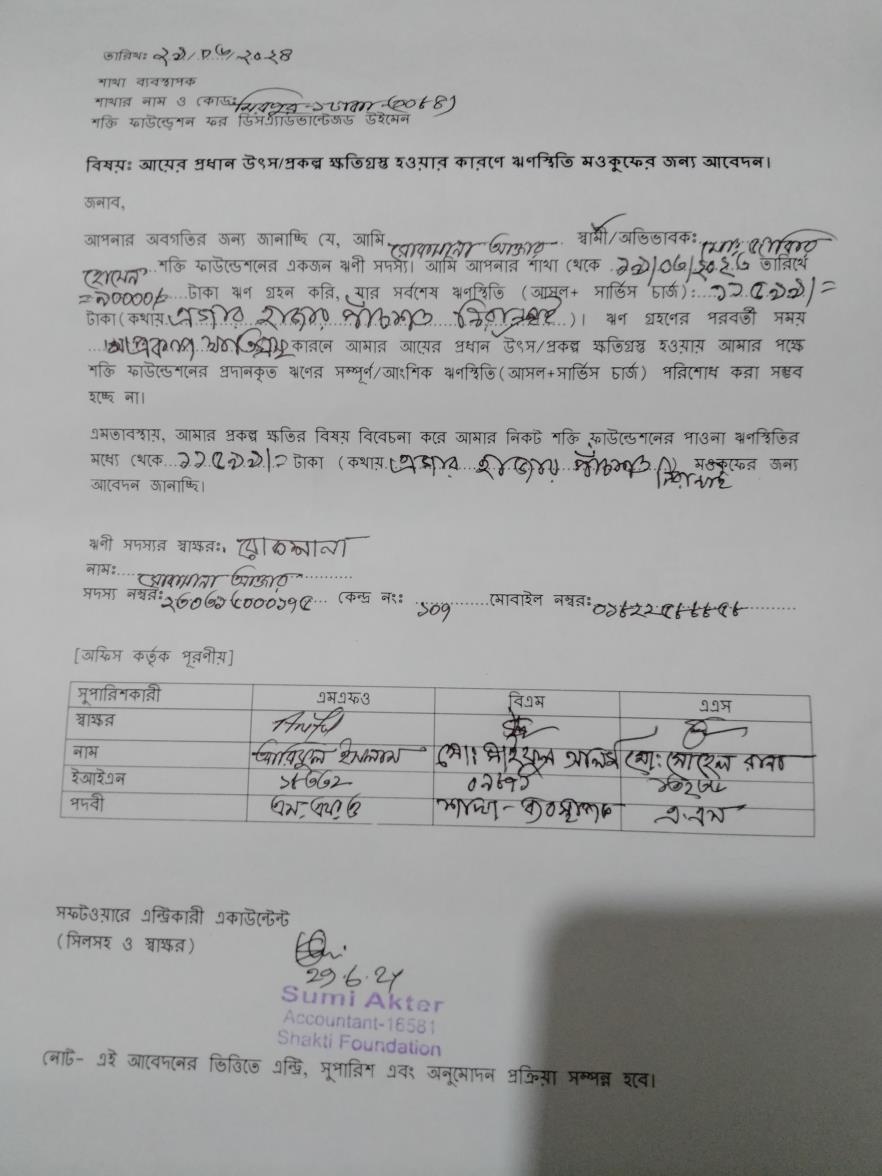 তারিখঃ ২৯/০৬/২০২৪
শাখা ব্যবস্থাপক
শাখার নাম ও কোডঃ মিরপুর-১ ঢাকা-(০০৮৪)
শক্তি ফাউন্ডেশন ফর ডিসএ্যাডভান্টেজড উইমেন
বিষয়ঃ আয়ের প্রধান উৎস/প্রকল্প ক্ষতিগ্রস্থ হওয়ার কারণে ঋণস্থিতি মওকুফের জন্য আবেদন।
জনাব,
আপনার অবগতির জন্য জানাচ্ছি যে, আমি রোকসানা আক্তার স্বামী/অভিভাবক: মোঃ
হোসেন শক্তি ফাউন্ডেশনের একজন ঋণী সদস্য। আমি আপনার শাখা থেকে তারিখে
টাকা ঋণ গ্রহন করি, যার সর্বশেষ ঋণস্থিতি (আসল+ সার্ভিস চার্জ): ১১৫৯৯/=
টাকা(কথায় এগার হাজার পাঁচশত নিরানব্বই)। ঋণ গ্রহণের পরবর্তী সময়
কারনে আমার আয়ের প্রধান উৎস/প্রকল্প ক্ষতিগ্রস্থ হওয়ায় আমার পক্ষে
শক্তি ফাউন্ডেশনের প্রদানকৃত ঋণের সম্পূর্ণ/আংশিক ঋণস্থিতি(আসল+সার্ভিস চার্জ) পরিশোধ করা সম্ভব
হচ্ছে না।
এমতাবস্থায়, আমার প্রকল্প ক্ষতির বিষয় বিবেচনা করে আমার নিকট শক্তি ফাউন্ডেশনের পাওনা ঋণস্থিতির
মধ্যে থেকে ১১৫৯৯/= টাকা (কথায় এগার হাজার পাঁচশত নিরানব্বই) মওকুফের জন্য
আবেদন জানাচ্ছি।
ঋণী সদস্যর স্বাক্ষরঃ রোকসানা
নামঃ রোকসানা আক্তার
সদস্য নম্বরঃ কেন্দ্র নংঃ ১০৭ মোবাইল নম্বরঃ
[অফিস কর্তৃক পূরণীয়]
সুপারিশকারী এমএফও বিএম এএস
স্বাক্ষর
নাম আরিফুল ইসলাম মোঃ সাইফুল আলম মোঃ সোহেল রানা
ইআইএন ১৮৩৩২
পদবী এম.এফ.ও শাখা-ব্যবস্থাপক এ.এস
সফটওয়ারে এন্ট্রিকারী একাউন্টেন্ট
(সিলসহ ও স্বাক্ষর)
29.6.24
Sumi Akter
Accountant-16581
Shakti Foundation
নোট- এই আবেদনের ভিত্তিতে এন্ট্রি, সুপারিশ এবং অনুমোদন প্রক্রিয়া সম্পন্ন হবে।